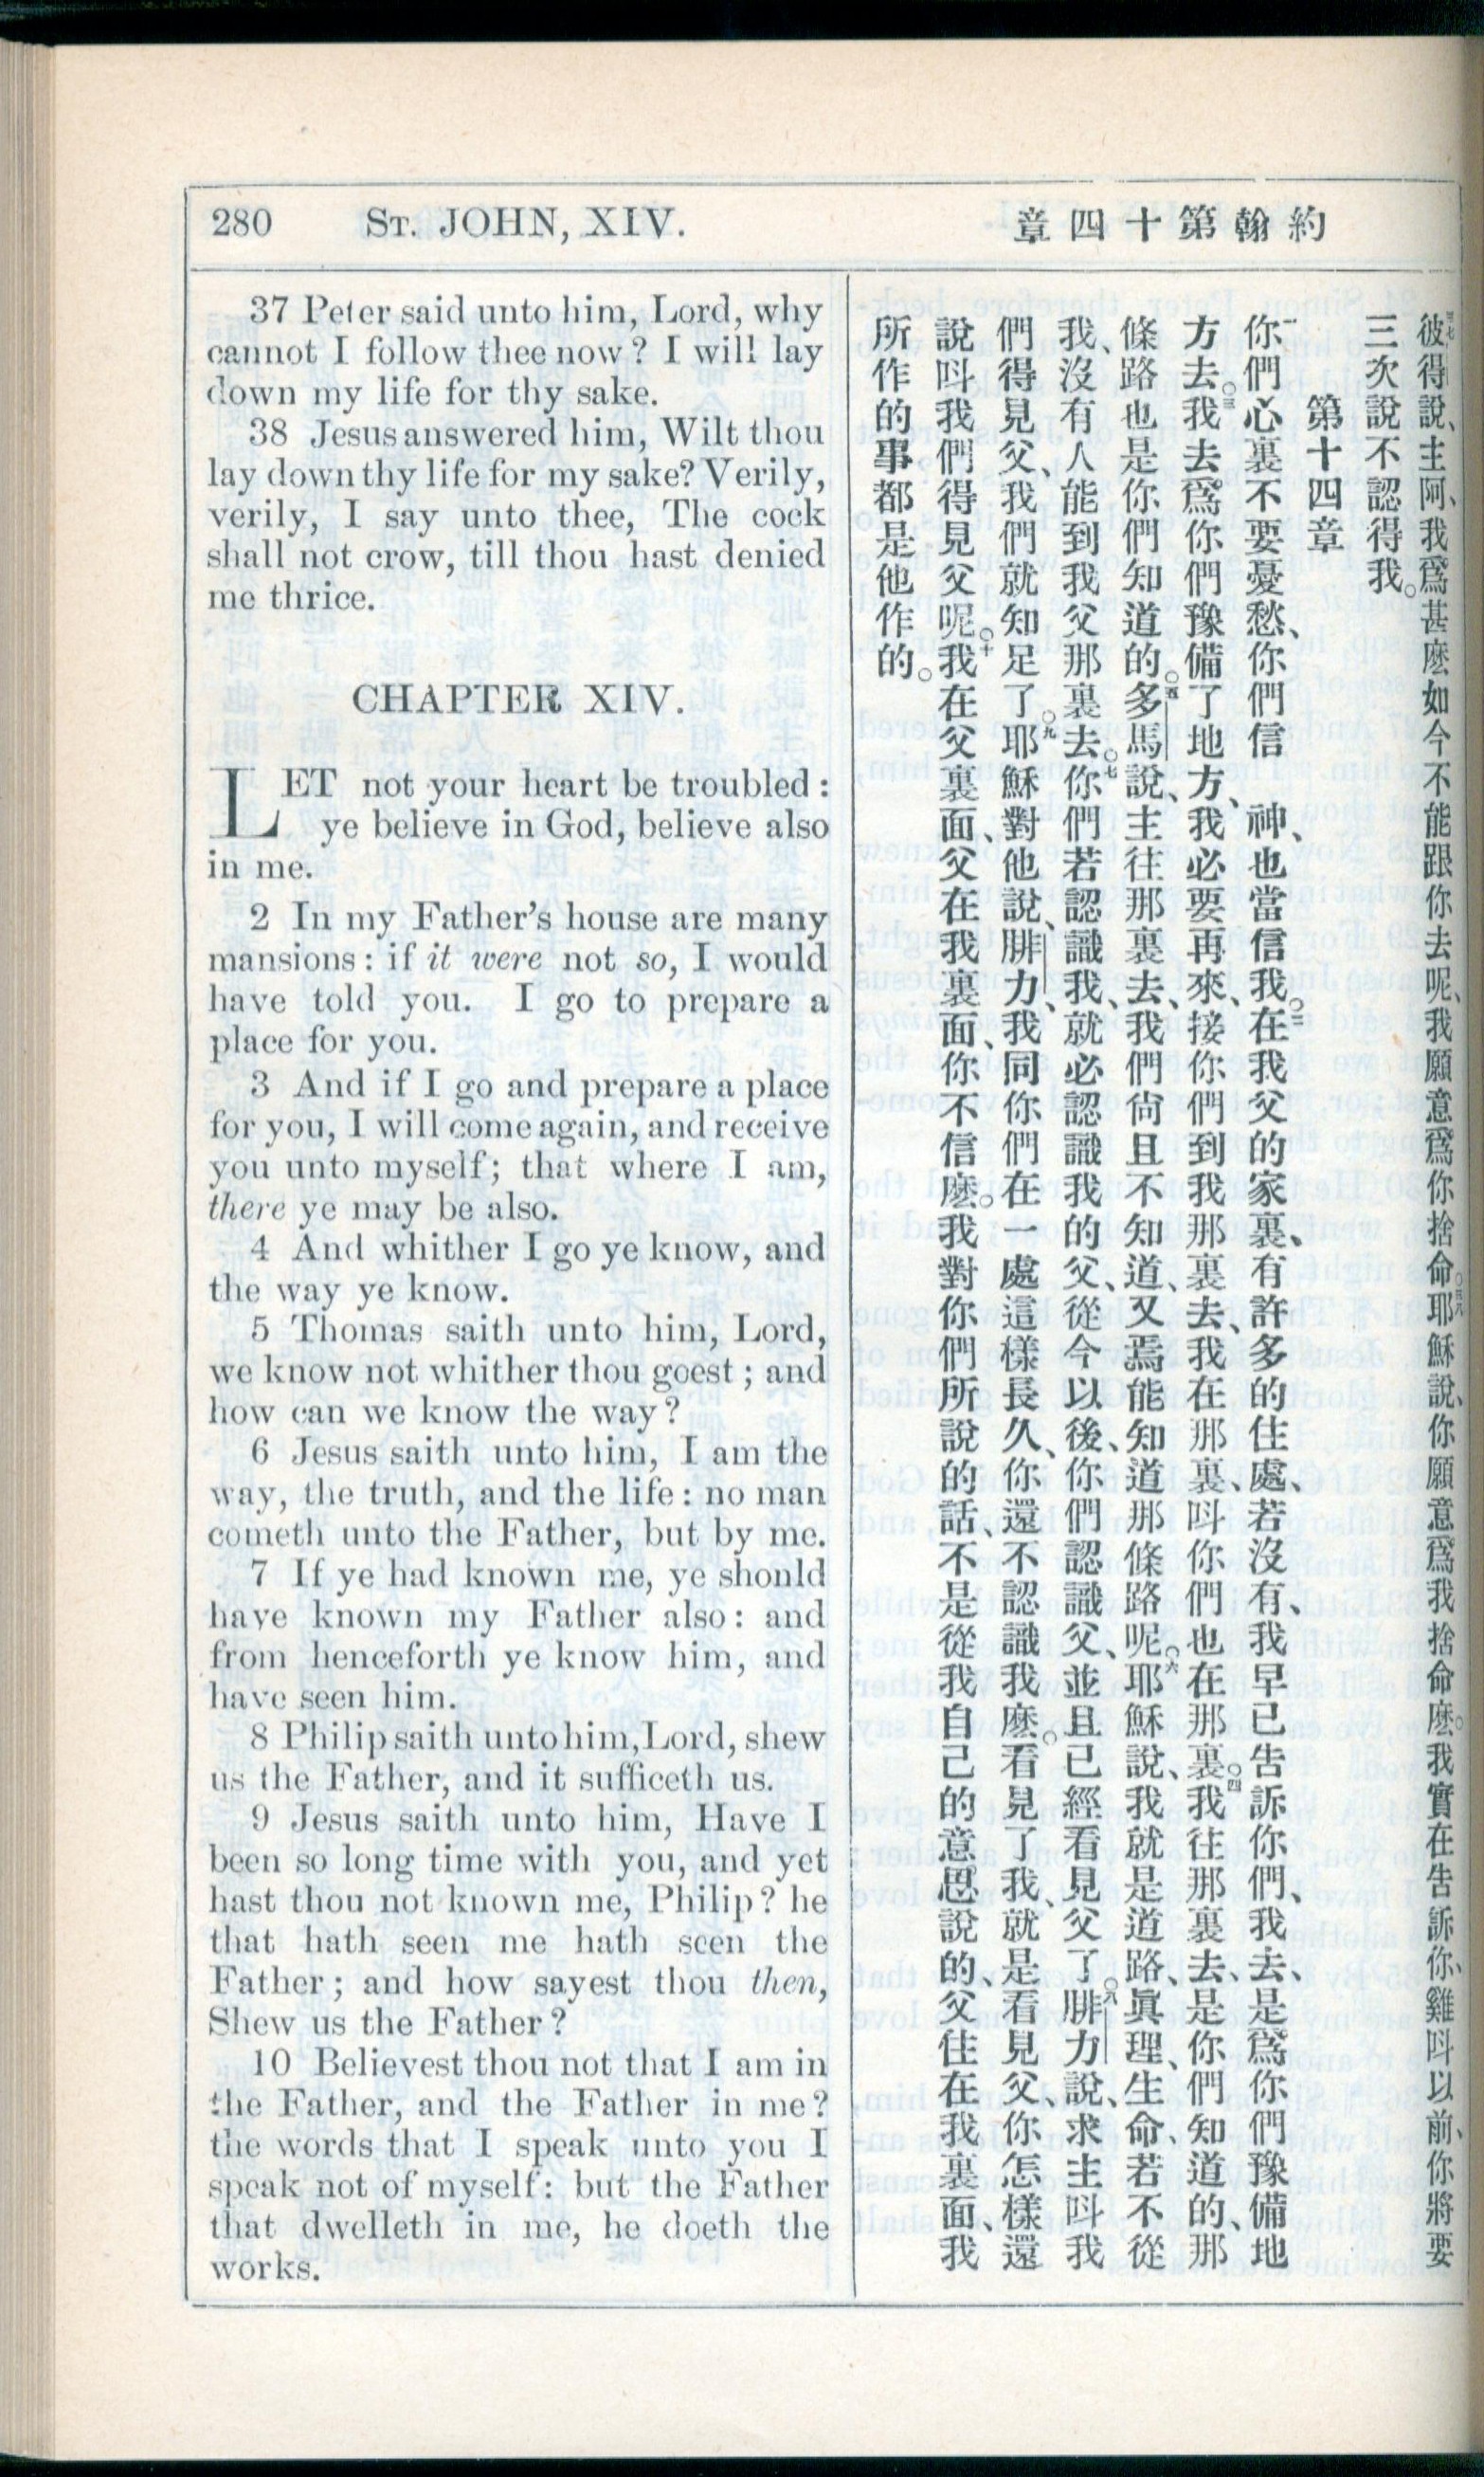 280 St. JOHN, XIV.
約翰第十四章
37 Peter said unto him, Lord, why
cannot I follow thee now? I will lay
down my life for thy sake.
38 Jesus answered him, Wilt thou
lay down thy life for my sake? Verily,
verily, I say unto thee, The cock
shall not crow, till thou hast denied
me thrice.
CHAPTER XIV.
LET not your heart be troubled:
ye believe in God, believe also
in me.
2 In my Father's house are many
mansions: if it were not so, I would
have told you. I go to prepare a
place for you.
3 And if I go and prepare a place
for you, I will come again, and receive
you unto myself; that where I am,
there ye may be also.
4 And whither I go ye know, and
the way ye know.
5 Thomas saith unto him, Lord,
we know not whither thou goest; and
how can we know the way?
6 Jesus saith unto him, I am the
way, the truth, and the life: no man
cometh unto the Father, but by me.
7 If ye had known me, ye should
have known my Father also: and
from henceforth ye know him, and
have seen him.
8 Philip saith unto him, Lord, shew
us the Father, and it sufficeth us.
9 Jesus saith unto him, Have I
been so long time with you, and yet
hast thou not known me, Philip? he
that hath seen me hath seen the
Father; and how sayest thou then,
Shew us the Father?
10 Believest thou not that I am in
the Father, and the Father in me?
the words that I speak unto you I
speak not of myself: but the Father
that dwelleth in me, he doeth the
works.
三七彼得說、主阿、我爲甚麽如今不能跟你去呢、我願意爲你捨命。三八耶穌說、你願意爲我捨命麽。我實在告訴你、雞呌以前、你將要
三次說不認得我。
第十四章
一你們心裏不要憂愁、你們信 神、也當信我。二在我父的家裏、有許多的住處、若沒有、我早已告訴你們、我去、是爲你們豫備地
方去。三我去爲你們豫備了地方、我必要再來、接你們到我那裏去、我在那裏、呌你們也在那裏。四我往那裏去、是你們知道的、那
條路也是你們知道的。五多馬說、主往那裏去、我們尙且不知道、又焉能知道那條路呢。六耶穌說、我就是道路、眞理、生命、若不從
我、沒有人能到我父那裏去。七你們若認識我、就必認識我的父、從今以後、你們認識父、並且已經看見父了。八腓力說、求主呌我
們得見父、我們就知足了。九耶穌對他說、腓力、我同你們在一處這樣長久、你還不認識我麽。看見了我、就是看見父、你怎樣還
說呌我們得見父呢。十我在父裏面、父在我裏面、你不信麽。我對你們所說的話、不是從我自己的意思說的、父住在我裏面、我
所作的事都是他作的。